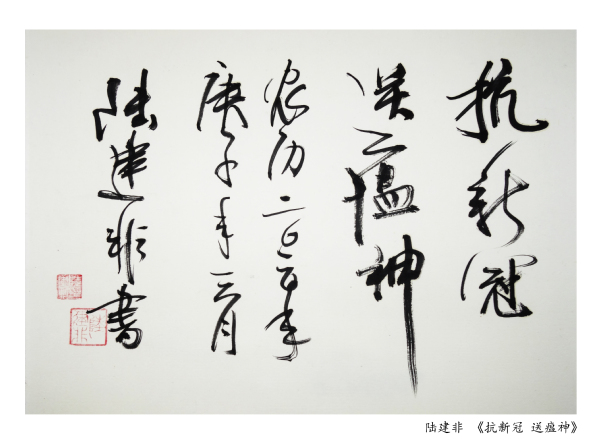 抗新冠
送瘟神
农历二〇二〇年
庚子年三月
陆建非书
陆建非 《抗新冠 送瘟神》